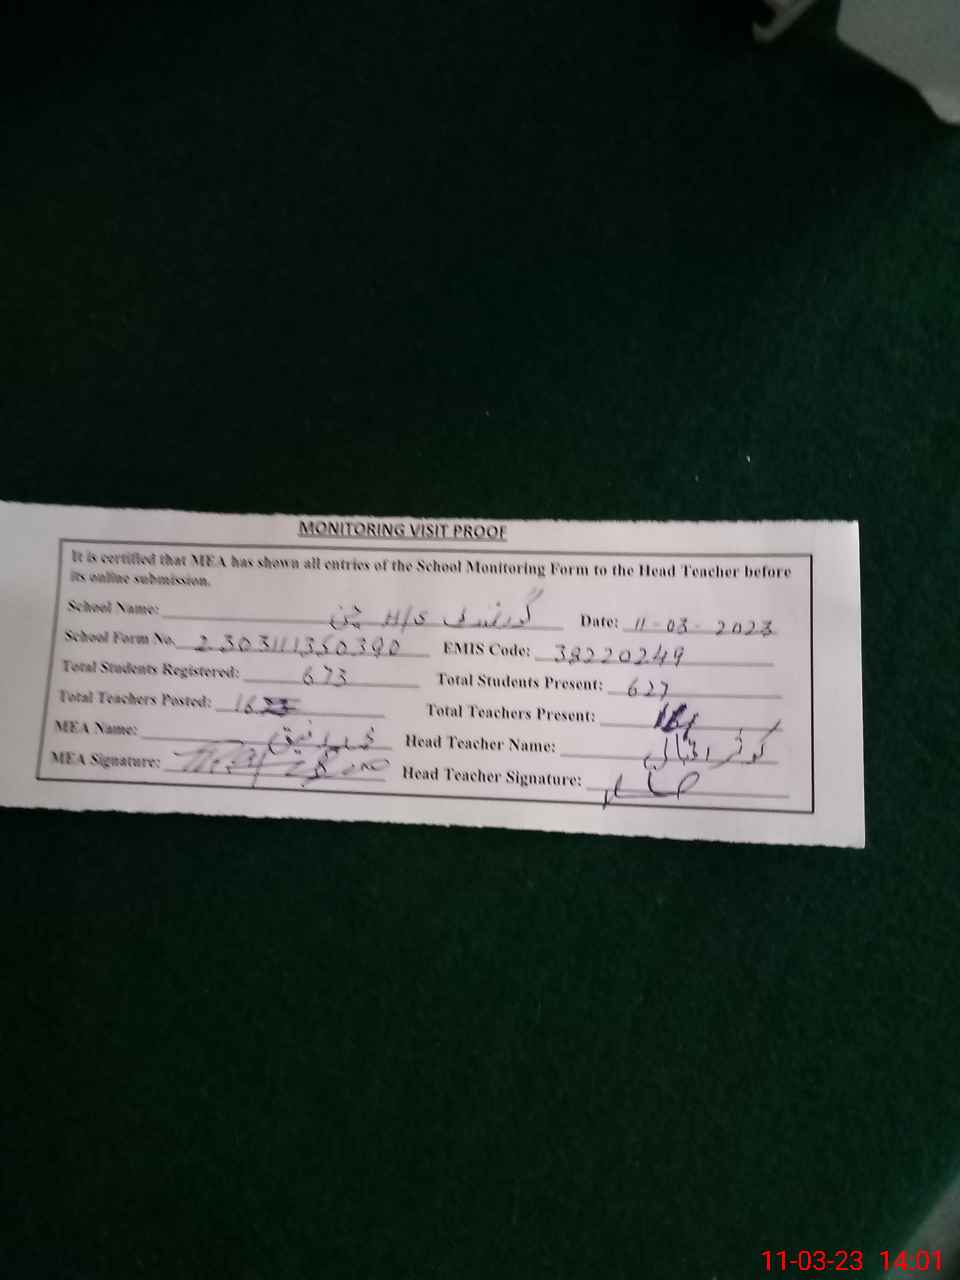 MONITORING VISIT PROOF
It is certified that MEA has shown all entries of the School Monitoring Form to the Head Teacher before
its online submission.
School Name: گورنمنٹ H/S Date: 11-03-2023
School Form No. 2303111350390 EMIS Code: 38220249
Total Students Registered: 673 Total Students Present: 627
Total Teachers Posted: 16 Total Teachers Present:
MEA Name: محمد رفیق Head Teacher Name: کوثر اقبال
MEA Signature: Head Teacher Signature:
11-03-23 14:01